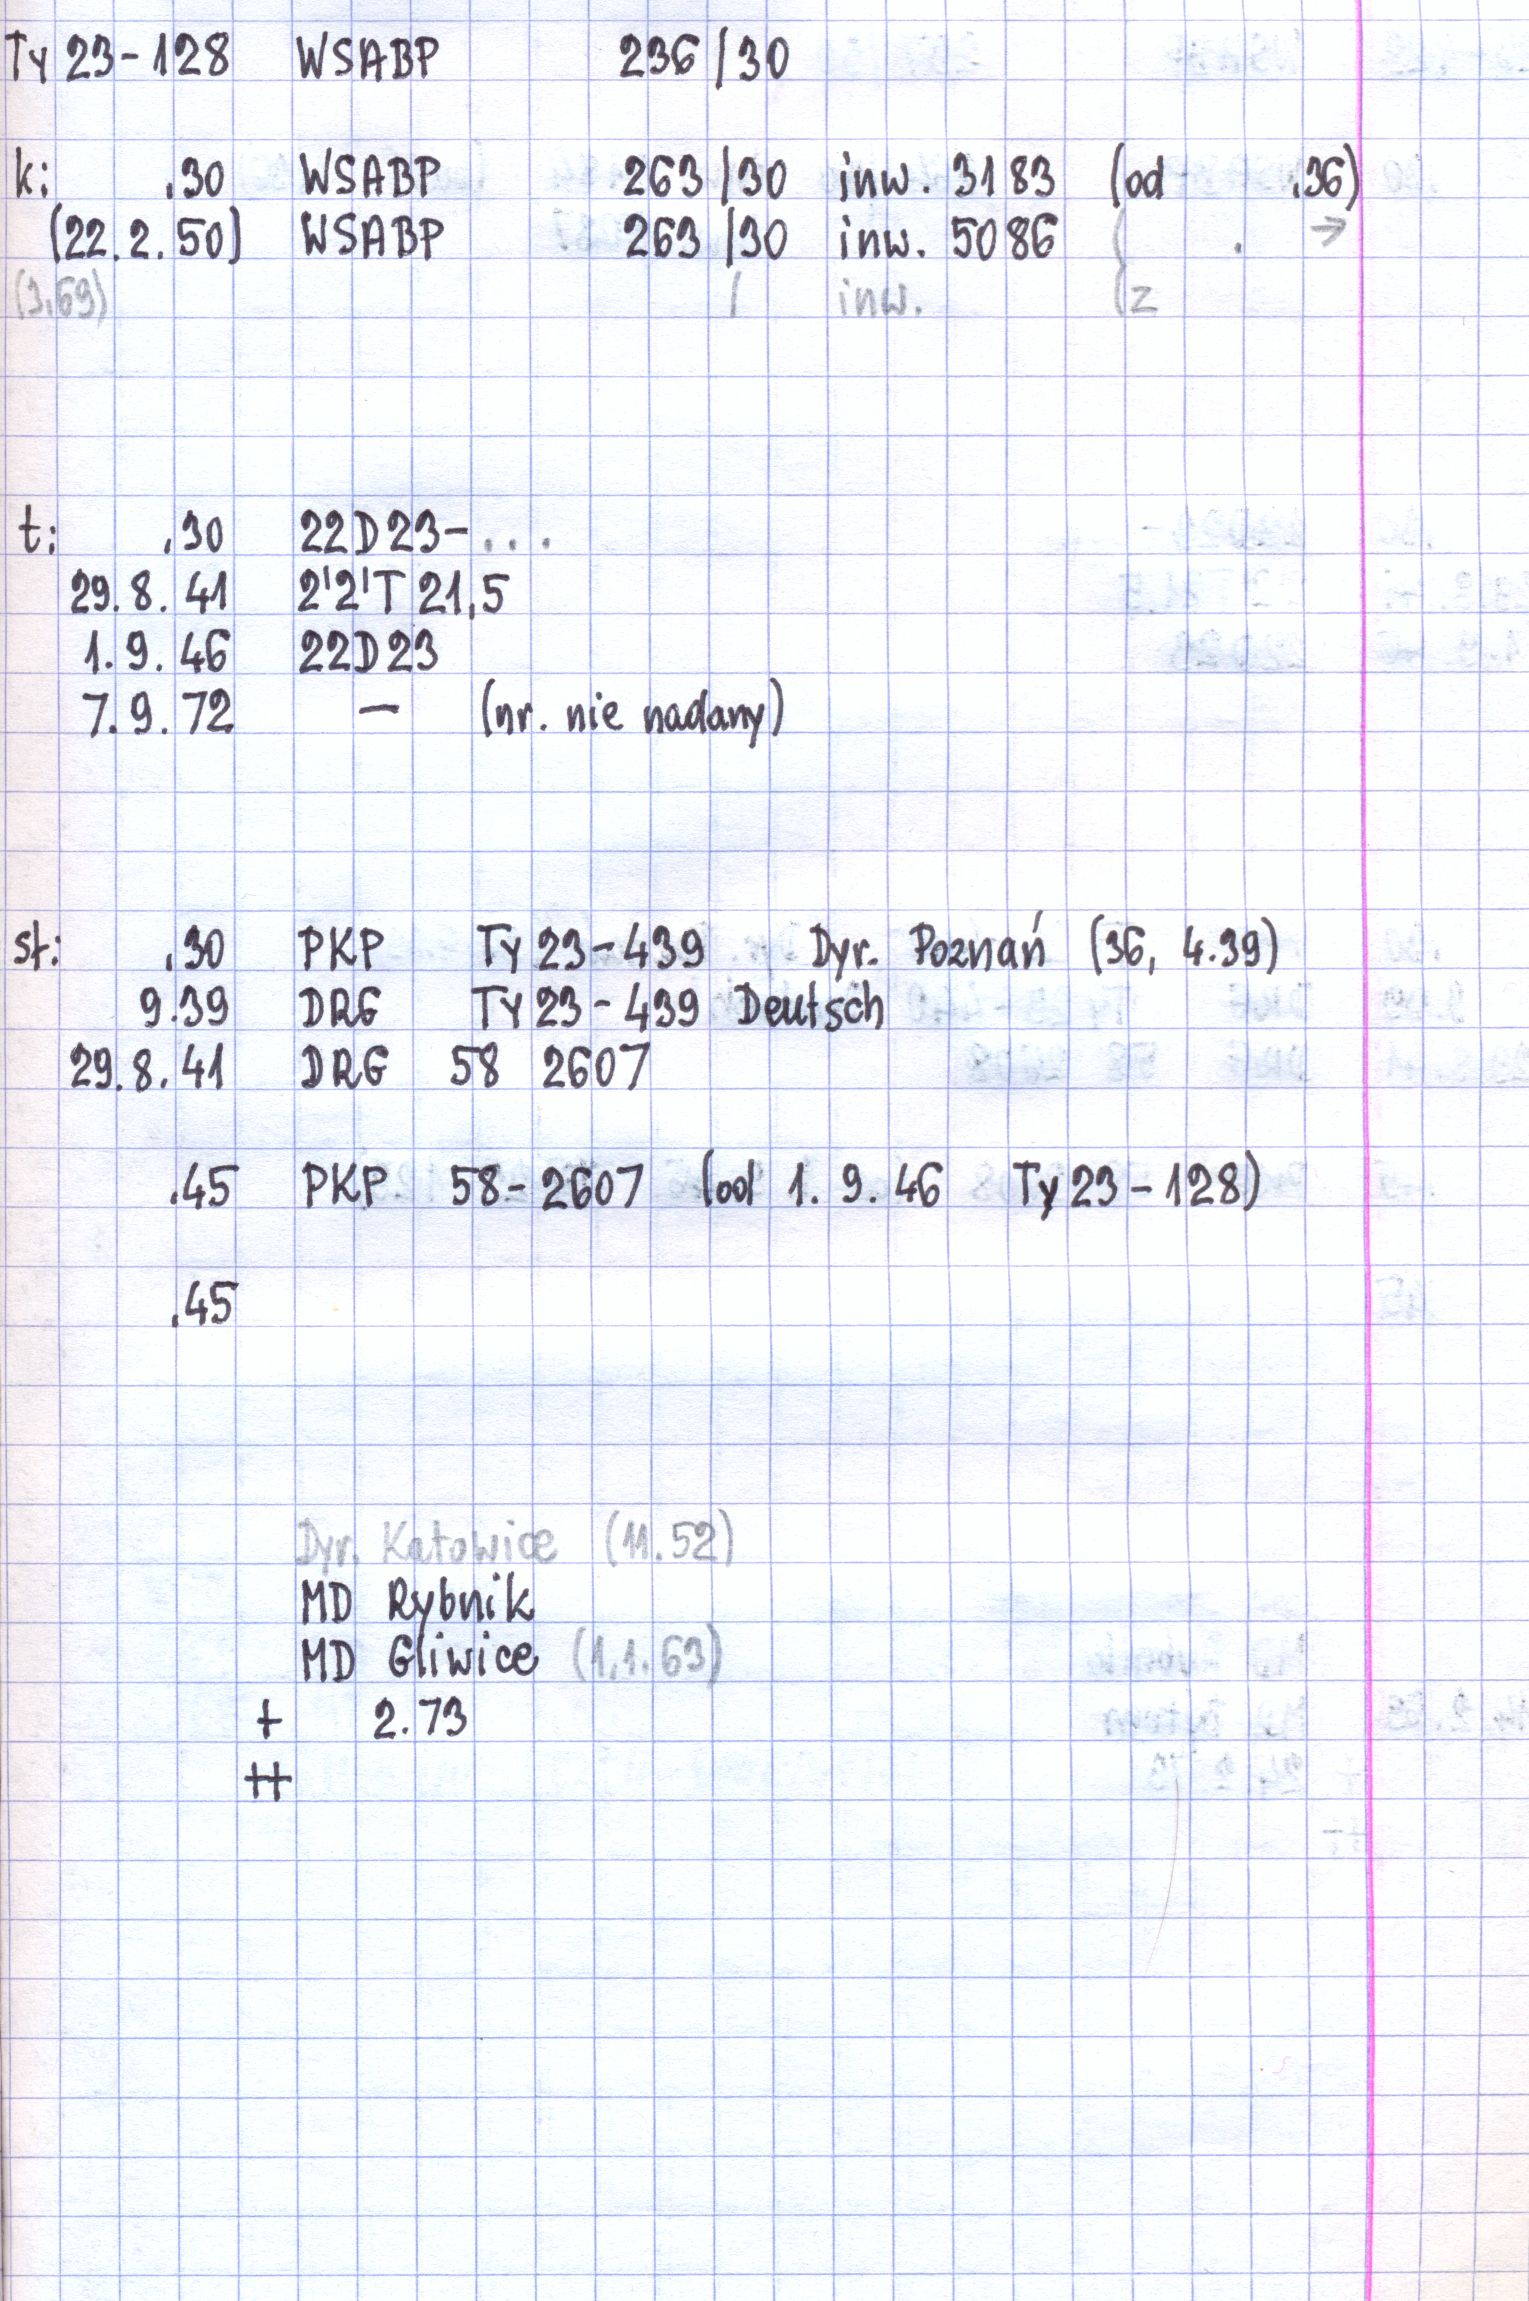 Ty 23-128 WSABP 236/30
k: .30 WSABP 263/30 inw. 3183 (od .36)
(22.2.50) WSABP 263/30 inw. 5086 ( . →
(3.69) / inw. (z
t: .30 22D23-...
29.8.41 2'2'T 21,5
1.9.46 22D23
7.9.72 — (nr. nie nadany)
st: .30 PKP Ty 23-439 Dyr. Poznań (36, 4.39)
9.39 DRG Ty 23-439 Deutsch
29.8.41 DRG 58 2607
.45 PKP 58-2607 (od 1.9.46 Ty 23-128)
.45
Dyr. Katowice (11.52)
MD Rybnik
MD Gliwice (1.1.63)
+ 2.73
++